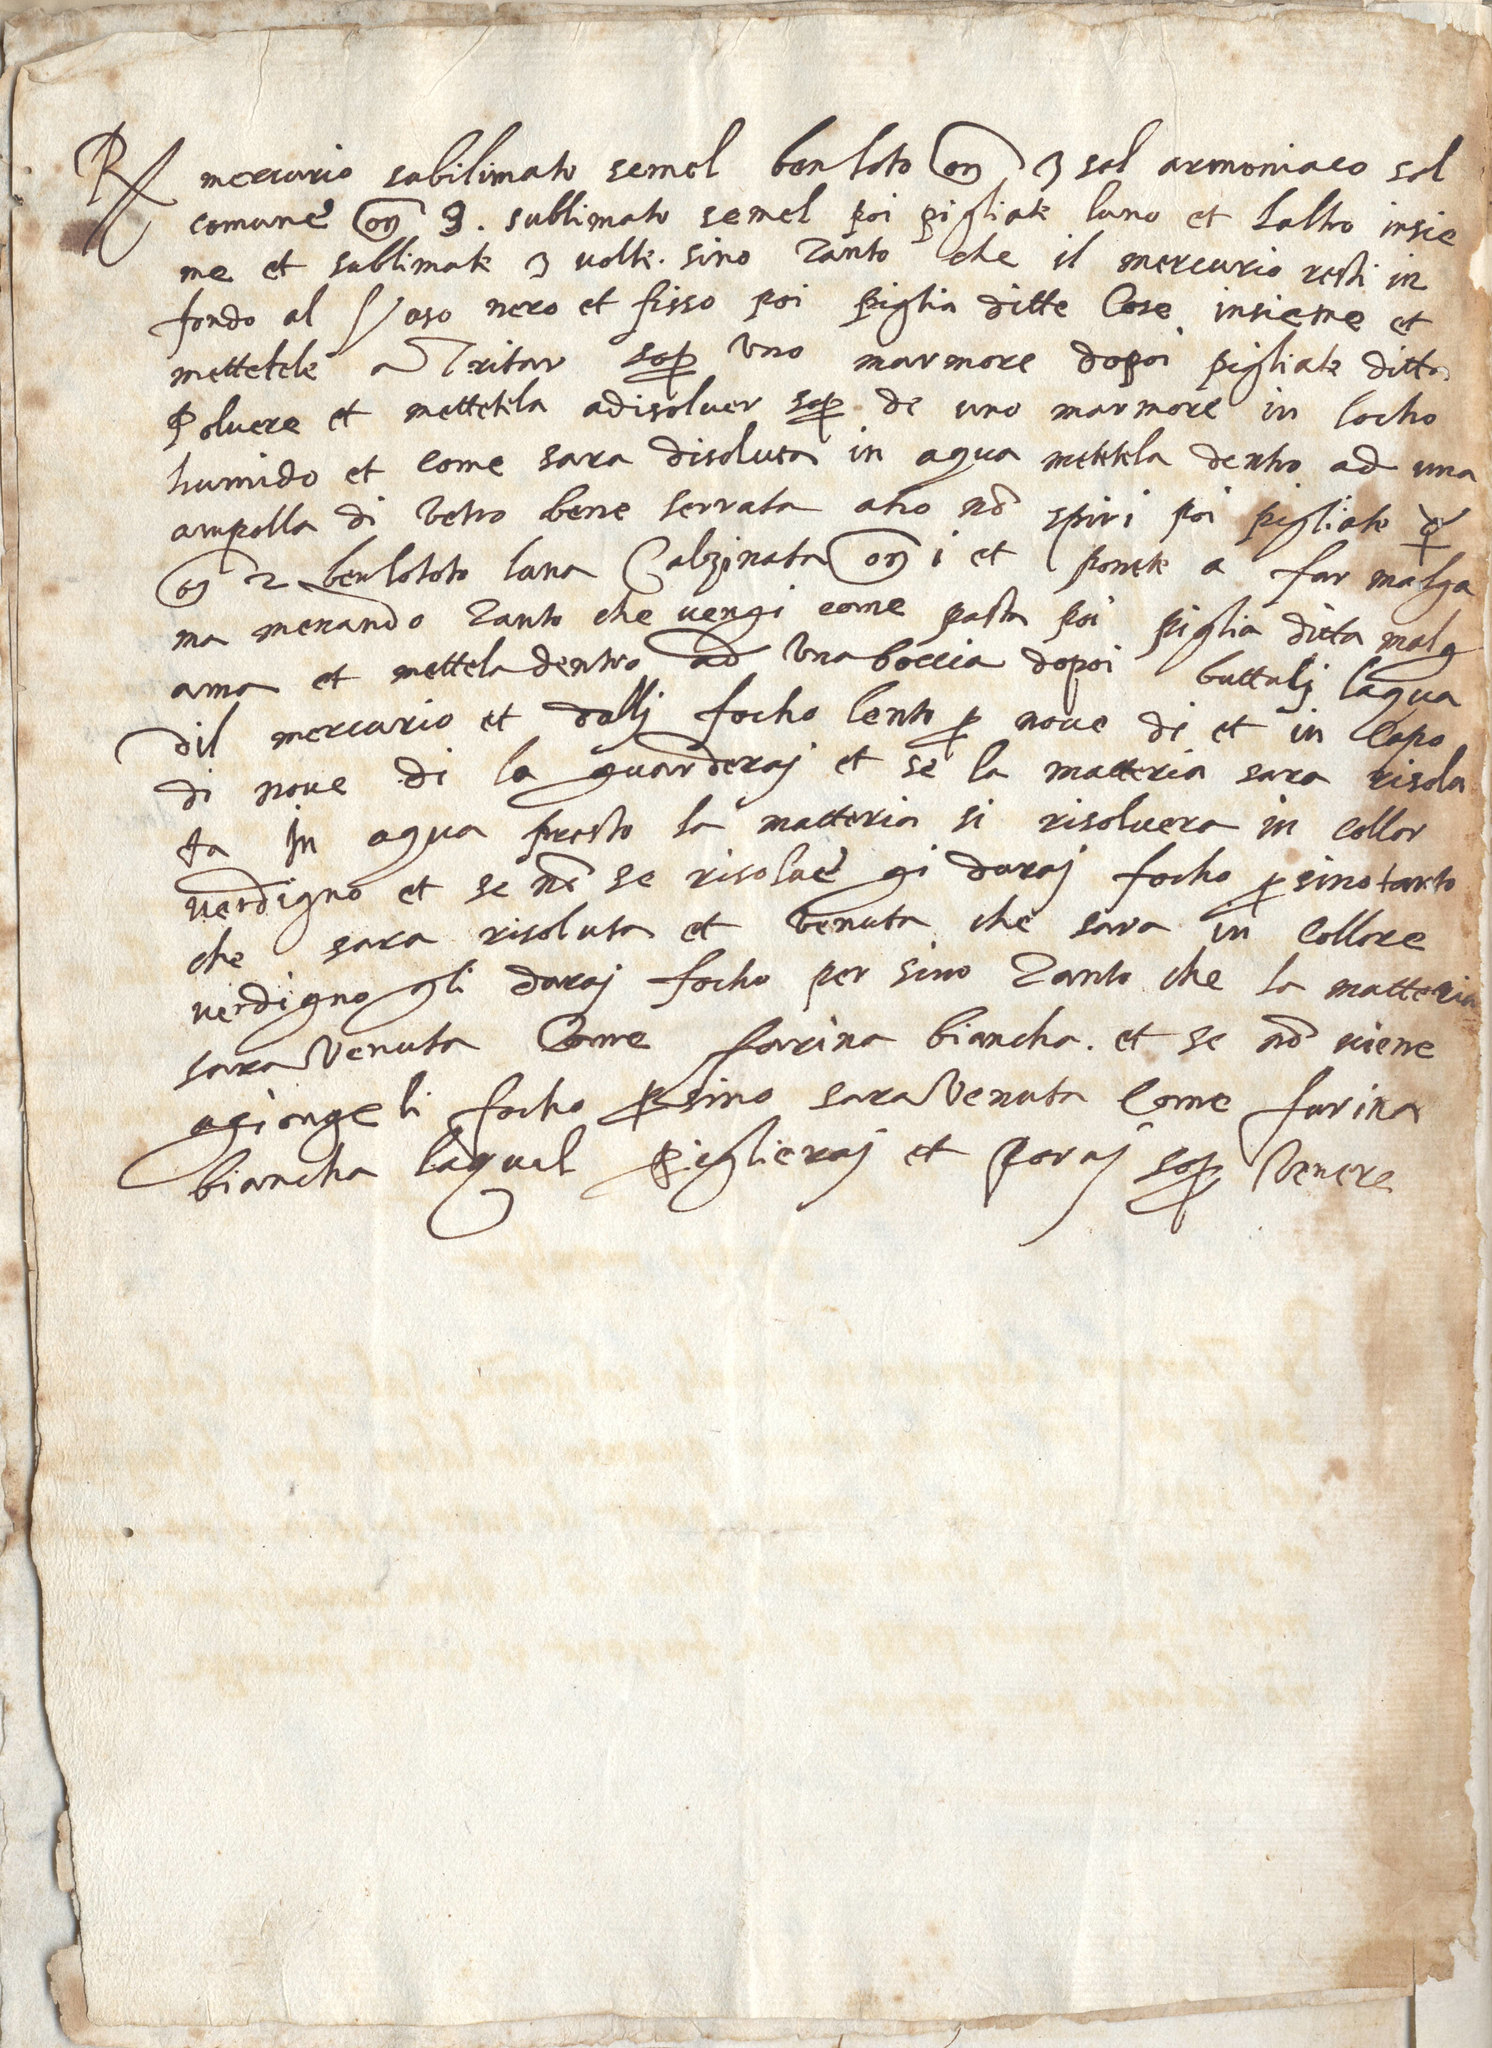 R mercurio subilimato semel ben loto on 3 sal armoniaco sal
comune on 3. sublimato semel poi pigliate luno et laltro insie
me et sublimate 3 volte. sino tanto che il mercurio resti in
fondo al Vaso nero et fisso poi piglia ditte Cose insieme et
mettetele a Tritar sop uno marmore dopoi pigliate ditta
polvere et mettetela adisolver sop de uno marmore in locho
humido et come sara disoluta in aqua metetela dentro ad una
ampolla di vetro bene serrata atio nō spiri poi pigliate ☿
on 2 ben lototo luna Calzinata on i et ponete a far malga
ma menando tanto che vengi come pasta poi piglia ditta malg
ama et mettela dentro ad una boccia dopoi buttalj laqua
dil mercurio et dallj focho lento p nove di et in Capo
di nove di la guarderaj et se la matteria sara risolu
ta In aqua presto la matteria si risolvera in collor
verdigno et se nō se risolve gi daraj focho p sino tanto
che sara risoluta et venuta che sara in collore
verdigno gli daraj focho per sino tanto che la matteria
sara venuta Come farina biancha. et se nō viene
agiongeli focho p sino sara venuta Come farina
biancha laqual piglieraj et poraj sop Venere